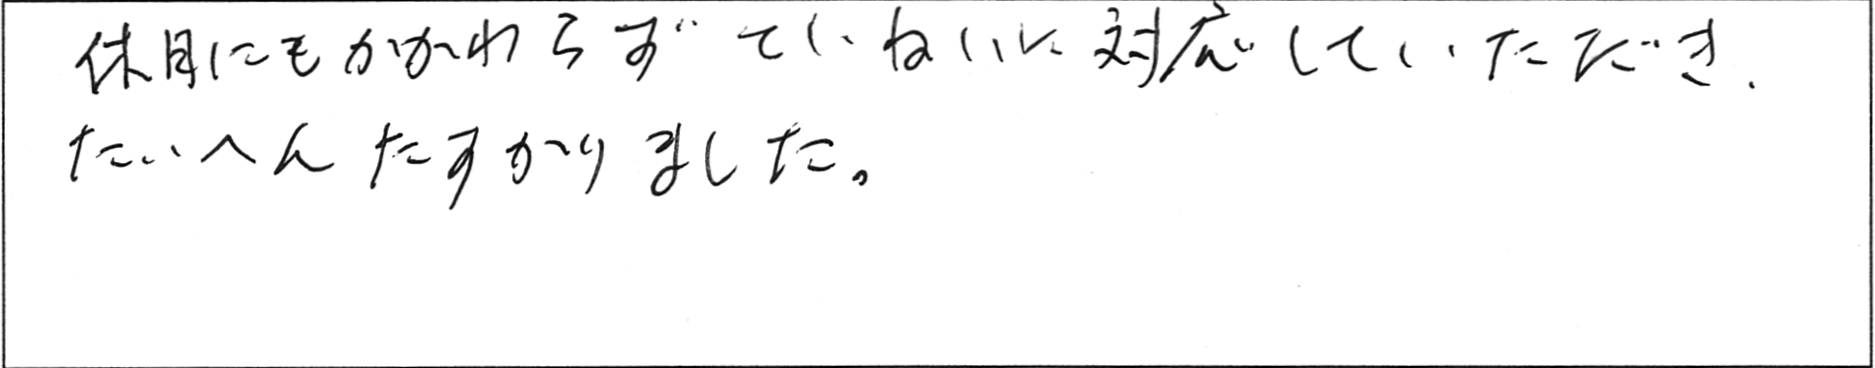 休日にもかかわらずていねいに対応していただき、
たいへんたすかりました。